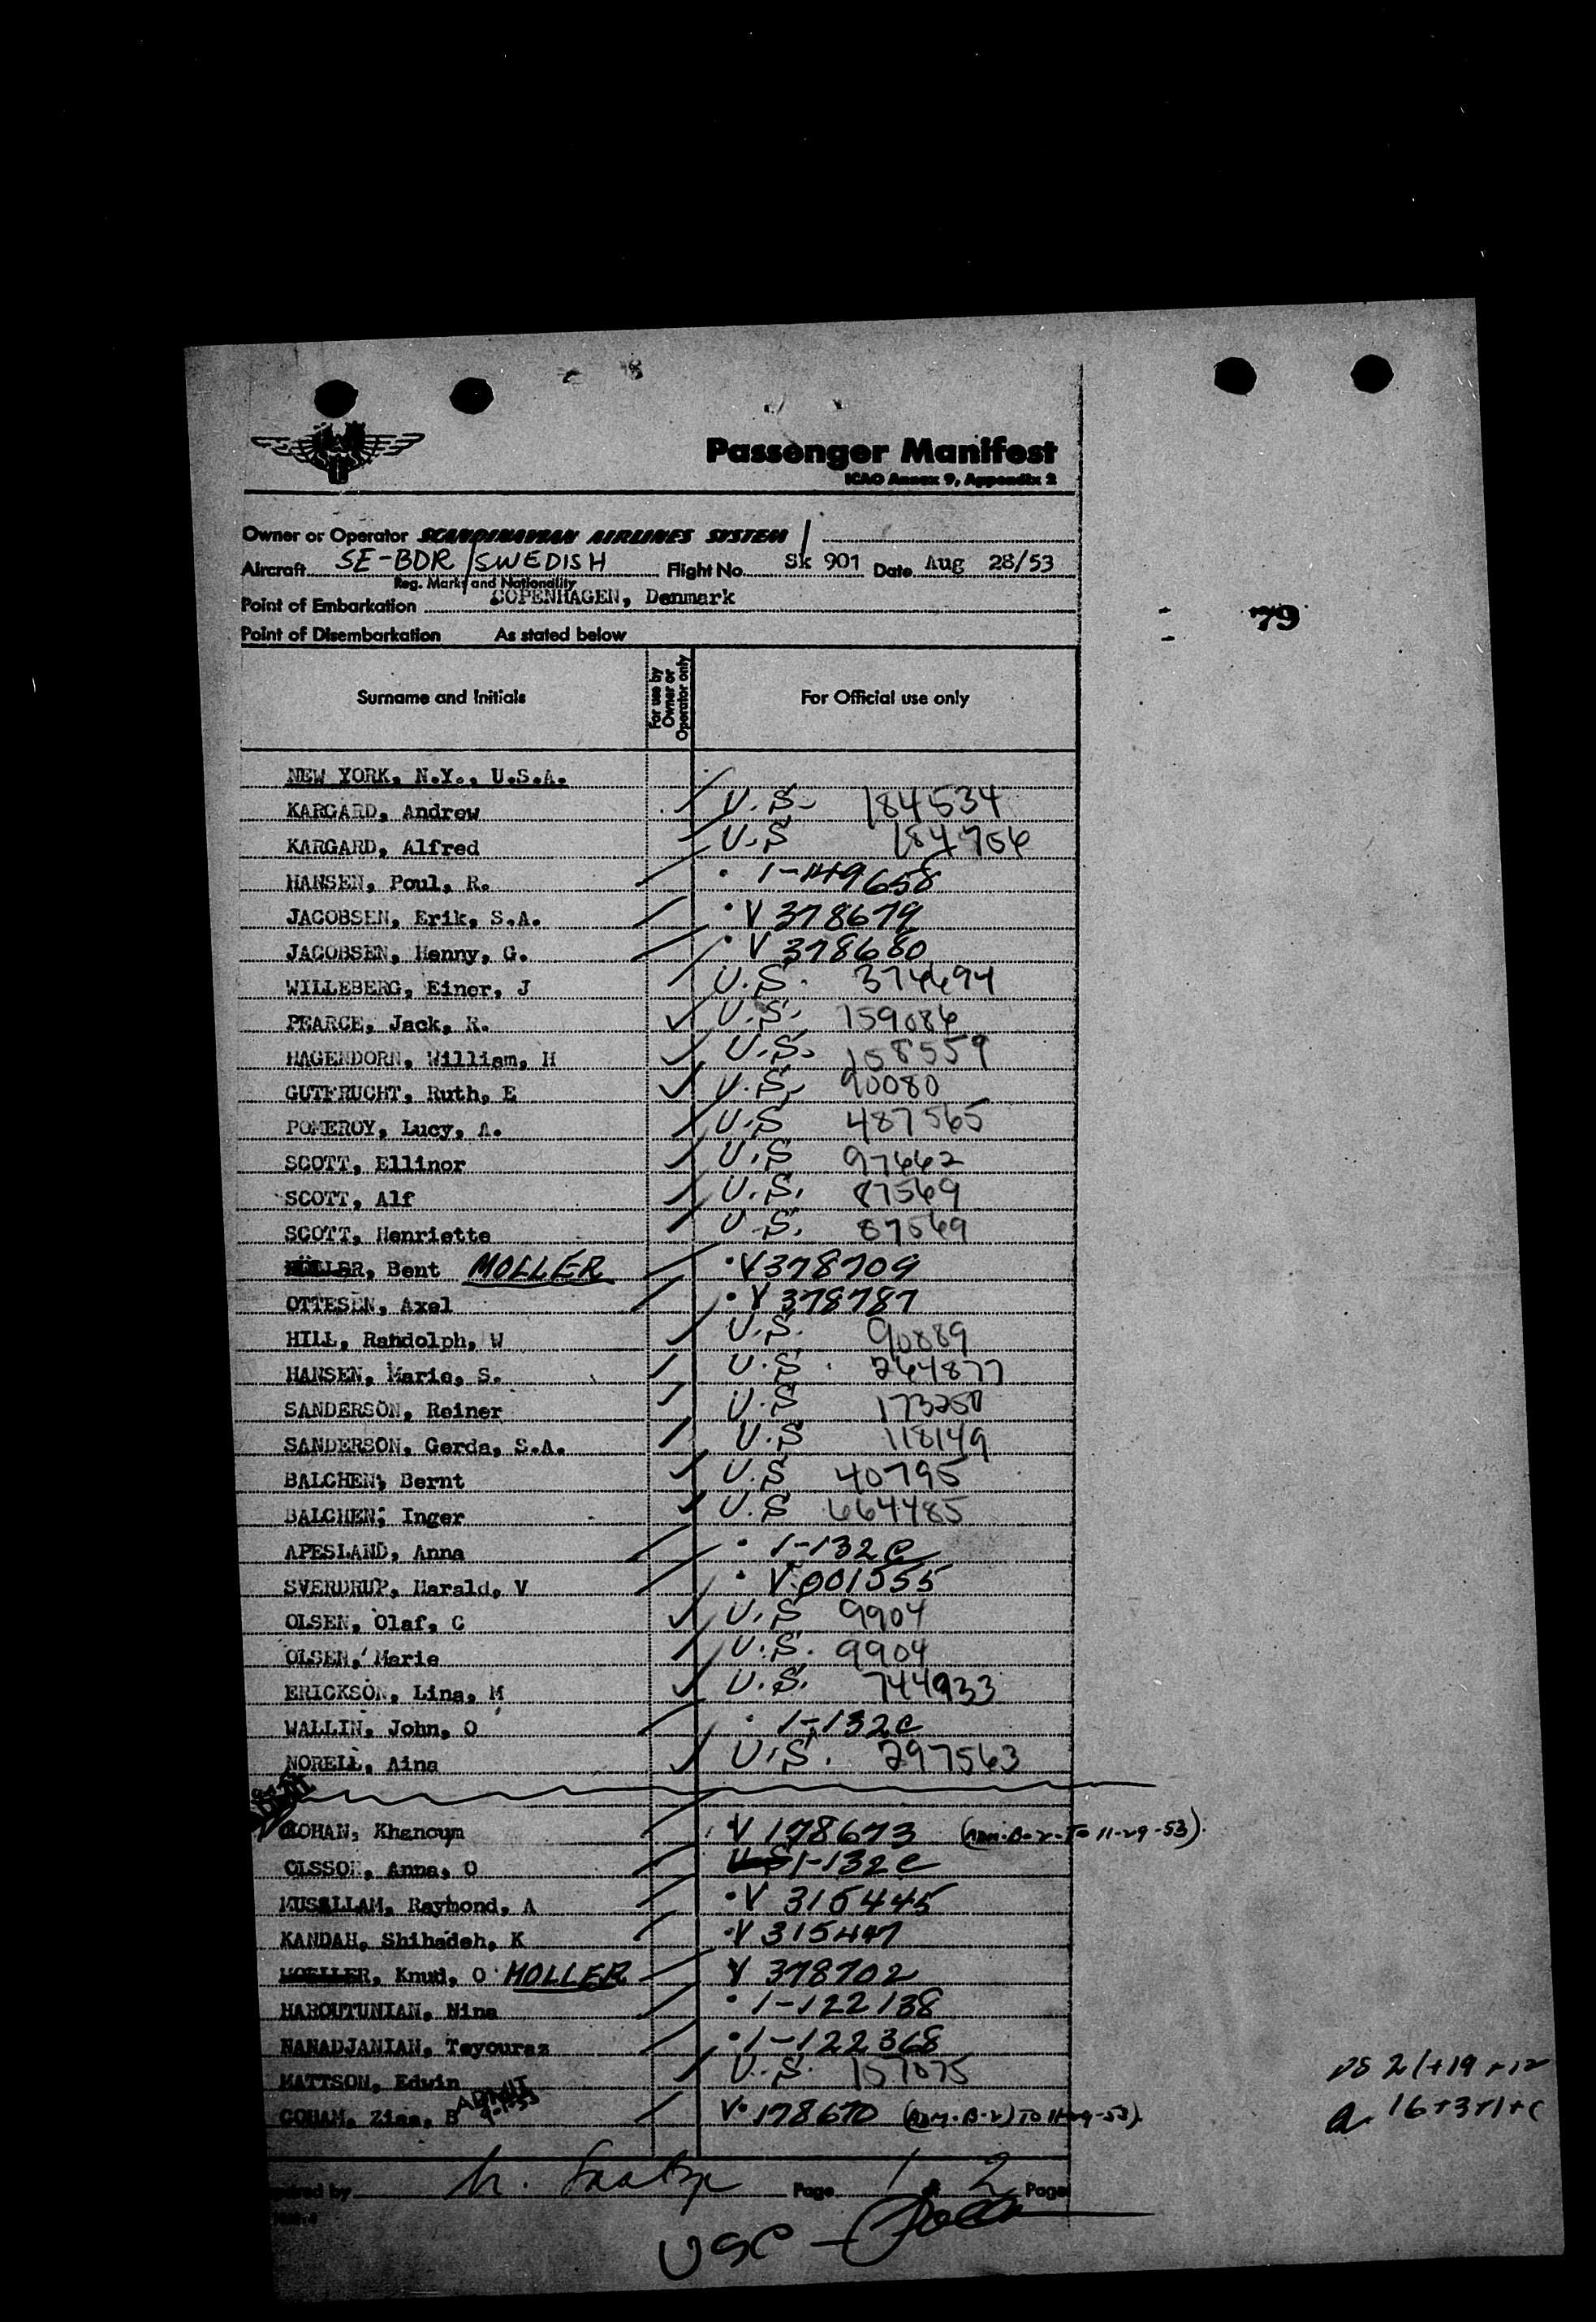 Passenger Manifest
ICAO Annex 9, Appendix 2
Owner or Operator SCANDINAVIAN AIRLINES SYSTEM
Aircraft SE-BDR/SWEDISH Flight No. Sk 901 Date Aug 28/53
Reg. Marks and Nationality
Point of Embarkation COPENHAGEN, Denmark
79
Point of Disembarkation As stated below
Surname and Initials For use by Owner or Operator only For Official use only
NEW YORK, N.Y., U.S.A.
KARGARD, Andrew U.S. 184534
KARGARD, Alfred U.S 184756
HANSEN, Poul, R. 1-449658
JACOBSEN, Erik, S.A. V 378679
JACOBSEN, Henny, G. V 378680
WILLEBERG, Einer, J U.S. 374694
PEARCE, Jack, R. U.S. 159086
HAGENDORN, William, H U.S. 158559
GUTFRUCHT, Ruth, E U.S. 90080
POMEROY, Lucy, A. U.S 487565
SCOTT, Ellinor U.S 97662
SCOTT, Alf U.S. 87569
SCOTT, Henriette U.S. 87569
Bent MOLLER V378709
OTTESEN, Axel V 378787
HILL, Randolph, W U.S. 90889
HANSEN, Marie, S. U.S. 264877
SANDERSON, Reiner U.S 173250
SANDERSON, Gerda, S.A. U.S 118149
BALCHEN, Bernt U.S 40795
BALCHEN, Inger U.S 664485
APESLAND, Anna 1-132c
SVERDRUP, Harald, V V.001555
OLSEN, Olaf, C U.S 9904
OLSEN, Marie U.S. 9904
ERICKSON, Lina, M U.S. 744933
WALLIN, John, O 1-132c
NORELL, Aina U.S. 297563
ROHAN, Khanoum V 178673 (ADM. B-2-TO 11-29-53)
OLSSON, Anna, O 1-132c
MUSALLAM, Raymond, A V 315445
KANDAH, Shihadeh, K V 315447
MOELLER, Knud, O MOLLER V 378702
HAROUTUNIAN, Nina 1-122138
NANADJANIAN, Teyouraz 1-122368
MATTSON, Edwin U.S. 157075
ADMIT
Ziaa, B V. 178670 (ADM. B-2) TO 11-29-53)
21+19+12
16+3+1+
by Page 1 2 Page
USC